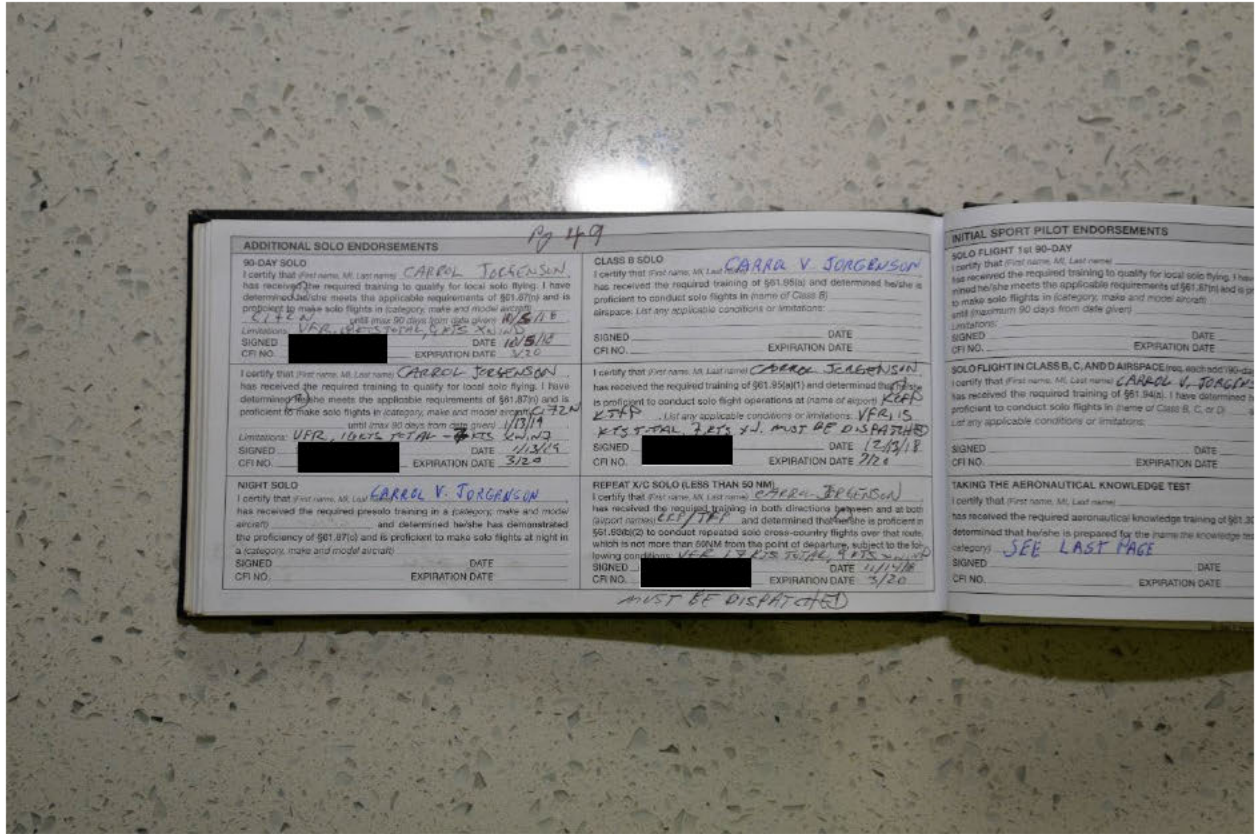 Pg 49
ADDITIONAL SOLO ENDORSEMENTS
90-DAY SOLO
I certify that (First name, MI, Last name) CARROL JORGENSON
has received the required training to qualify for local solo flying. I have
determined he/she meets the applicable requirements of §61.87(n) and is
proficient to make solo flights in (category, make and model aircraft)
C172N until (max 90 days from date given)
Limitations: VFR,
SIGNED DATE
CFI NO. EXPIRATION DATE 3/20
I certify that (First name, MI, Last name) CARROL JORGENSON
has received the required training to qualify for local solo flying. I have
determined he/she meets the applicable requirements of §61.87(n) and is
proficient to make solo flights in (category, make and model aircraft) C172N
until (max 90 days from date given) 1/13/19
Limitations: VFR, 10 KTS TOTAL - 7 KTS XWIND
SIGNED DATE 1/13/19
CFI NO. EXPIRATION DATE 3/20
NIGHT SOLO
I certify that (First name, MI, Last name) CARROL V. JORGENSON
has received the required presolo training in a (category, make and model
aircraft) and determined he/she has demonstrated
the proficiency of §61.87(o) and is proficient to make solo flights at night in
a (category, make and model aircraft)
SIGNED DATE
CFI NO. EXPIRATION DATE
CLASS B SOLO
I certify that (First name, MI, Last name) CARROL V JORGENSON
has received the required training of §61.95(a) and determined he/she is
proficient to conduct solo flights in (name of Class B)
airspace. List any applicable conditions or limitations:
SIGNED DATE
CFI NO. EXPIRATION DATE
I certify that (First name, MI, Last name) CARROL JORGENSON
has received the required training of §61.95(a)(1) and determined that he/she
is proficient to conduct solo flight operations at (name of airport)
KTFP. List any applicable conditions or limitations: VFR, 15
KTS TOTAL, 7 KTS XW. MUST BE DISPATCHED
SIGNED DATE 12/13/18
CFI NO. EXPIRATION DATE
REPEAT X/C SOLO (LESS THAN 50 NM)
I certify that (First name, MI, Last name) CARROL JORGENSON
has received the required training in both directions between and at both
(airport names) and determined that he/she is proficient in
§61.93(b)(2) to conduct repeated solo cross-country flights over that route,
which is not more than 50NM from the point of departure, subject to the fol-
lowing conditions: VFR 17 KTS TOTAL, 9 KTS XWIND
SIGNED DATE 11/14/18
CFI NO. EXPIRATION DATE 3/20
MUST BE DISPATCHED
INITIAL SPORT PILOT ENDORSEMENTS
SOLO FLIGHT 1st 90-DAY
I certify that (First name, MI, Last name)
has received the required training to qualify for local solo flying. I have
mined he/she meets the applicable requirements of §61.87(n) and is
to make solo flights in (category, make and model aircraft)
until (maximum 90 days from date given)
Limitations:
SIGNED DATE
CFI NO. EXPIRATION DATE
SOLO FLIGHT IN CLASS B, C, AND D AIRSPACE
I certify that (First name, MI, Last name) CARROL V. JORGEN
has received the required training of §61.94(a). I have determined
proficient to conduct solo flights in (name of Class B, C, or D
List any applicable conditions or limitations:
SIGNED DATE
CFI NO. EXPIRATION DATE
TAKING THE AERONAUTICAL KNOWLEDGE TEST
I certify that (First name, MI, Last name)
has received the required aeronautical knowledge training of
determined that he/she is prepared for the (name the knowledge test
category) SEE LAST PAGE
SIGNED DATE
CFI NO. EXPIRATION DATE